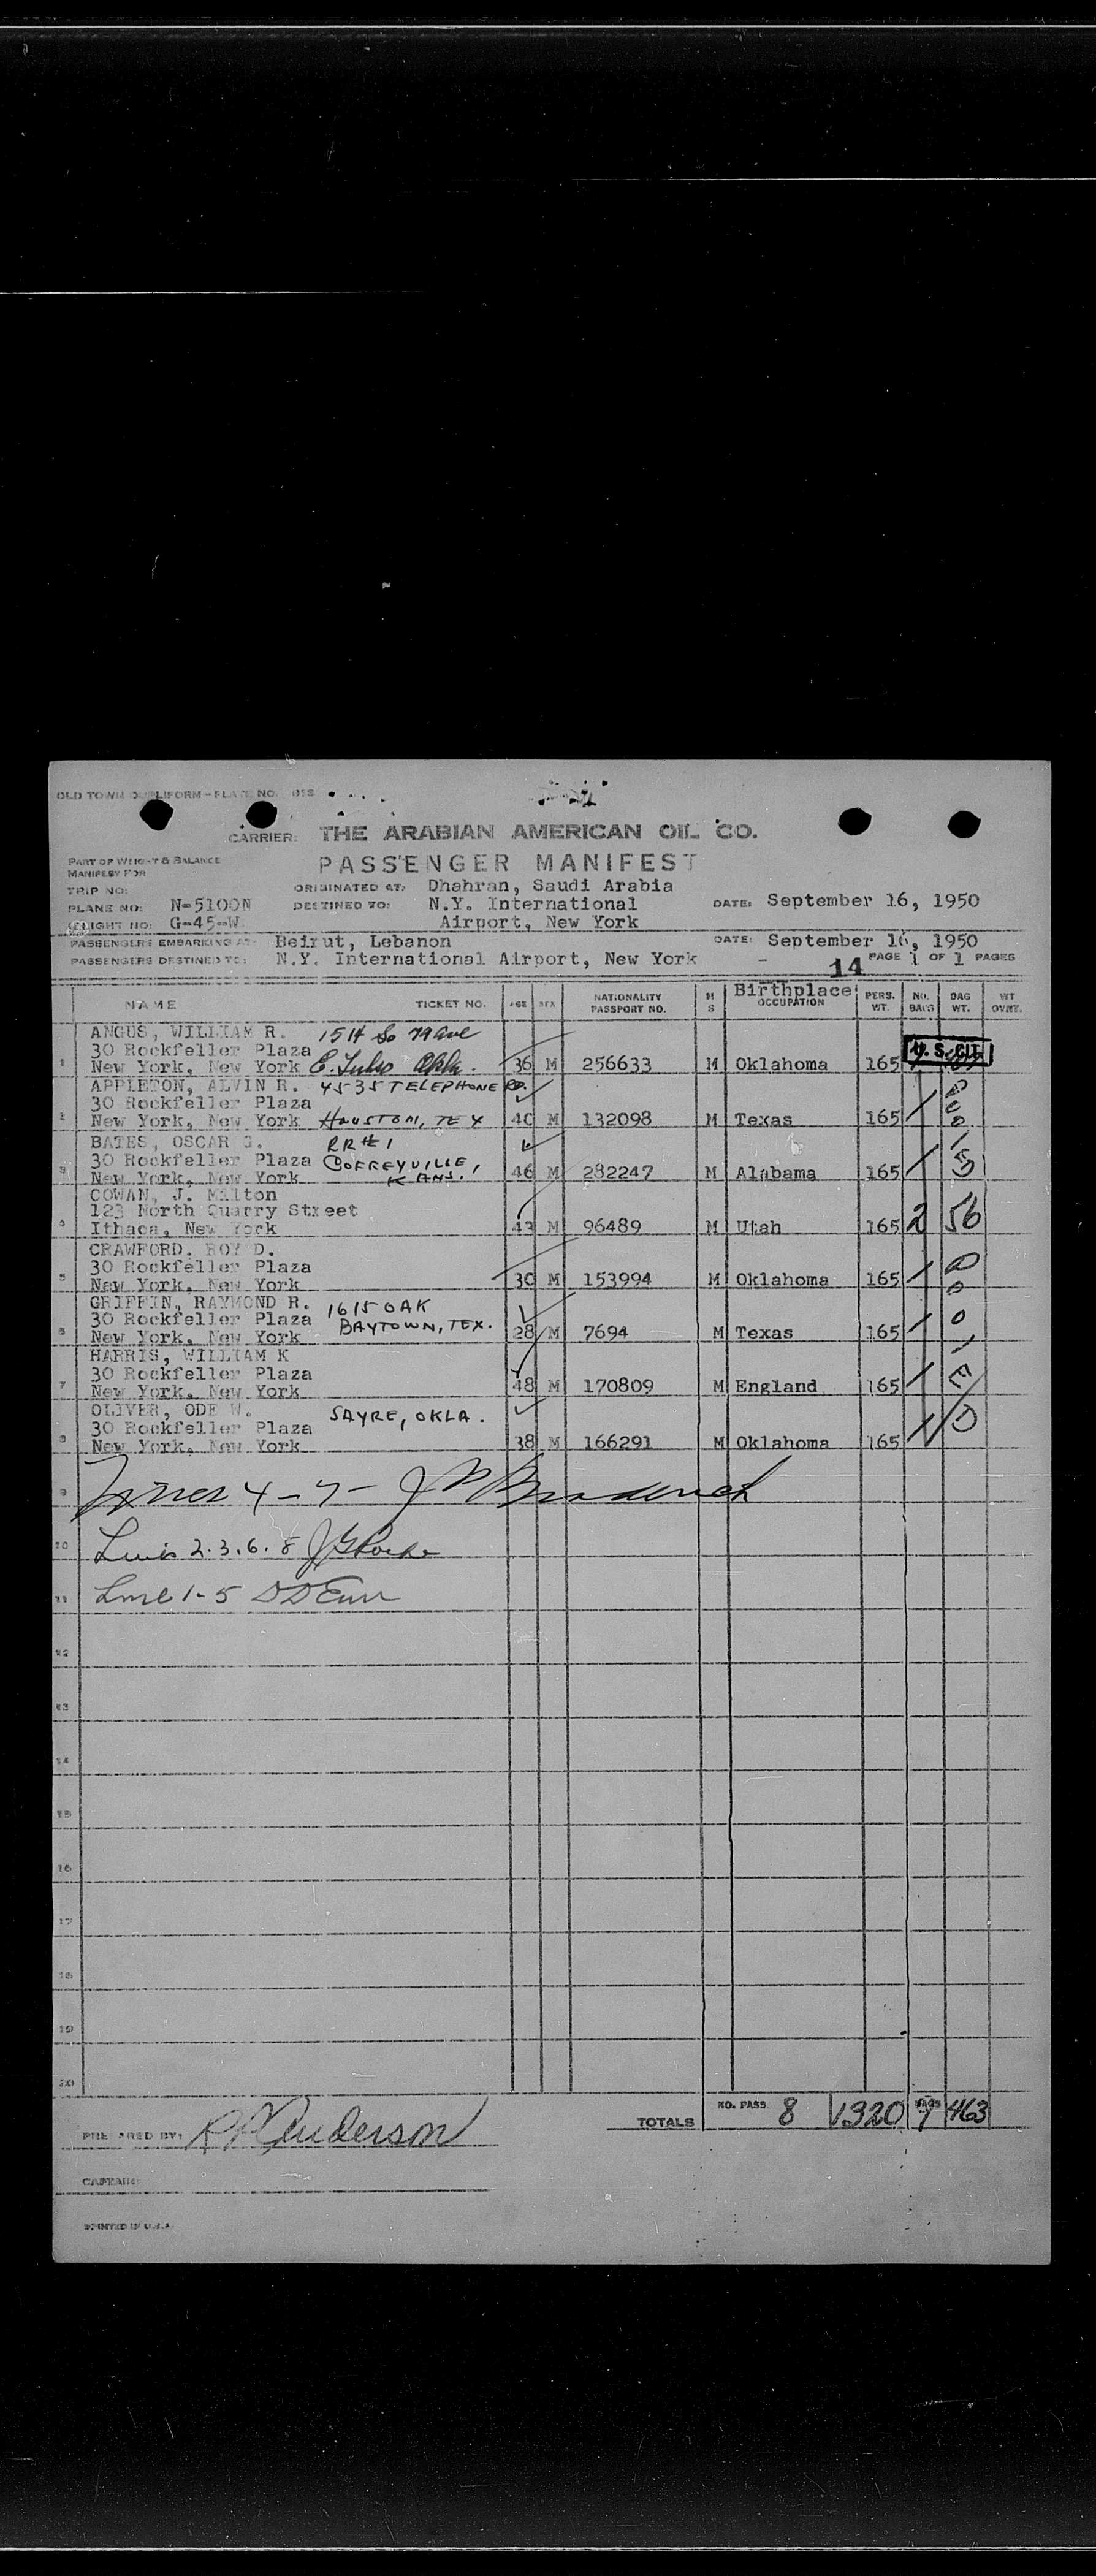 OLD TOWN DUPLIFORM-PLATE NO. 618
CARRIER: THE ARABIAN AMERICAN OIL CO.
PART OF WEIGHT & BALANCE
MANIFEST FOR
PASSENGER MANIFEST
TRIP NO:
ORIGINATED AT: Dhahran, Saudi Arabia
PLANE NO: N-5100N DESTINED TO: N.Y. International DATE: September 16, 1950
FLIGHT NO: G-45-W Airport, New York
PASSENGERS EMBARKING AT: Beirut, Lebanon DATE: September 16, 1950
PASSENGERS DESTINED TO: N.Y. International Airport, New York - 14 PAGE 1 OF 1 PAGES
NAME TICKET NO. AGE SEX NATIONALITY PASSPORT NO. M S Birthplace OCCUPATION PERS. WT. NO. BAGS BAG WT. WT OVWT.
ANGUS, WILLIAM R. 15 So Ave
30 Rockfeller Plaza U.S. CIT
1 New York, New York E. Tulsa Okla. 36 M 256633 M Oklahoma 165
APPLETON, ALVIN R. 4535 TELEPHONE RD.
30 Rockfeller Plaza
2 New York, New York HOUSTON, TEX 40 M 132098 M Texas 165
BATES, OSCAR G. RR#1
30 Rockfeller Plaza COFFEYVILLE,
3 New York, New York KANS. 46 M 282247 M Alabama 165
COWAN, J. Milton
123 North Quarry Street
4 Ithaca, New York 43 M 96489 M Utah 165 2 56
CRAWFORD, ROY D.
30 Rockfeller Plaza
5 New York, New York 30 M 153994 M Oklahoma 165
GRIFFIN, RAYMOND R. 1615 OAK
30 Rockfeller Plaza BAYTOWN, TEX.
6 New York, New York 28 M 7694 M Texas 165
HARRIS, WILLIAM K
30 Rockfeller Plaza
7 New York, New York 48 M 170809 M England 165
OLIVER, ODE W. SAYRE, OKLA.
30 Rockfeller Plaza
8 New York, New York 38 M 166291 M Oklahoma 165
9 4-7-
10 2.3.6.8
11 Line 1-5
12
13
14
15
16
17
18
19
20
TOTALS NO. PASS 8 1320 BAGS 9 463
PREPARED BY: Anderson
CAPTAIN:
PRINTED IN U.S.A.